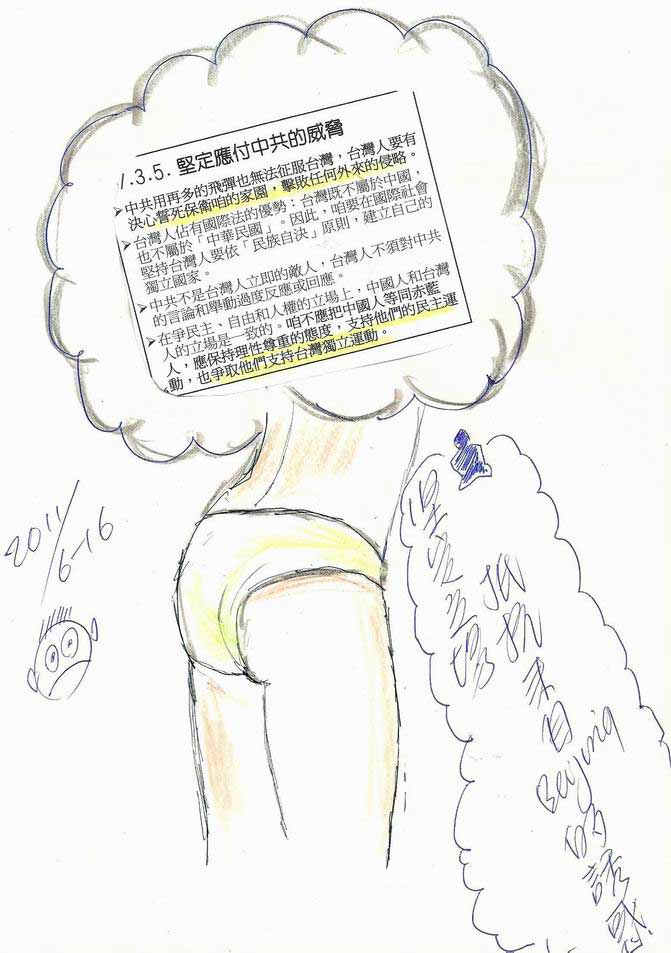 1.3.5. 堅定應付中共的威脅
➢中共用再多的飛彈也無法征服台灣，台灣人要有
決心誓死保衛咱的家園，擊敗任何外來的侵略。
➢台灣人佔有國際法的優勢：台灣既不屬於中國，
也不屬於「中華民國」。因此，咱要在國際社會
堅持台灣人要依「民族自決」原則，建立自己的
獨立國家。
➢中共不是台灣人立即的敵人，台灣人不須對中共
的言論和舉動過度反應或回應。
➢在爭民主、自由和人權的立場上，中國人和台灣
人的立場是一致的。咱不應把中國人等同赤藍
人，應保持理性尊重的態度，支持他們的民主運
動，也爭取他們支持台灣獨立運動。
2011/
6-16
堅定立場
抵抗來自Beijing的誘惑!